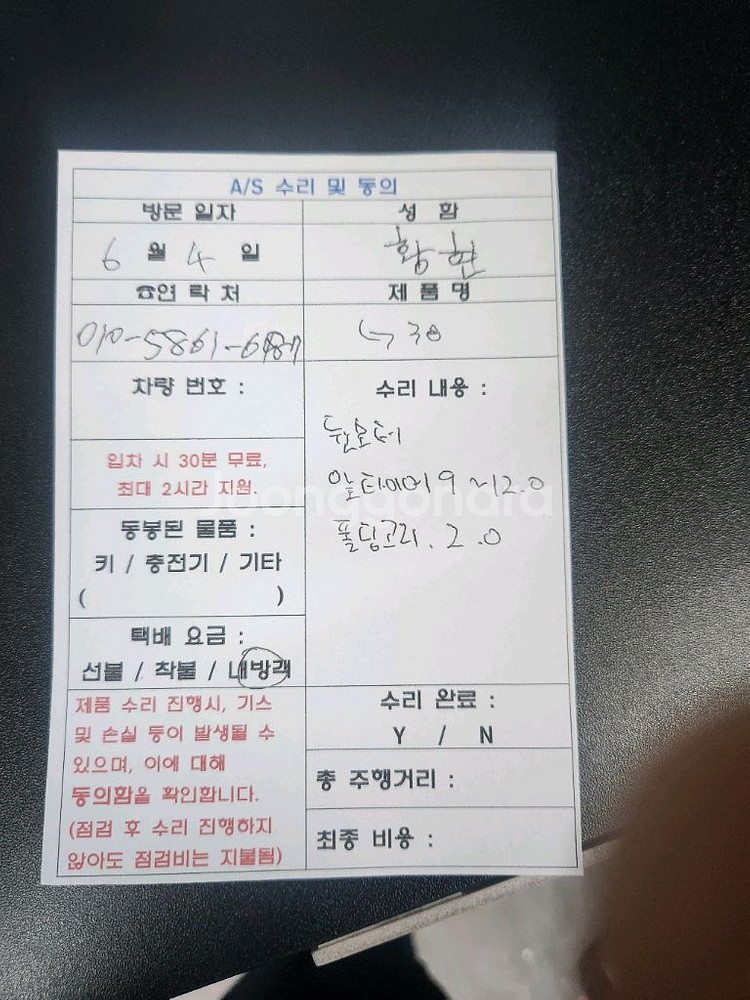 A/S 수리 및 동의
방문 일자
성 함
6 월 4 일
황현
☎연 락 처
제 품 명
010-5861-
30
차량 번호 :
수리 내용 :
뒷모터
입차 시 30분 무료,
최대 2시간 지원.
9 ~12.0
Joonggonara
동봉된 물품 :
폴딩고리. 2.0
키 / 충전기 / 기타
( )
택배 요금 :
선불 / 착불 / 내방객
제품 수리 진행시, 기스
및 손실 등이 발생될 수
있으며, 이에 대해
동의함을 확인합니다.
(점검 후 수리 진행하지
않아도 점검비는 지불됨)
수리 완료 :
Y / N
총 주행거리 :
최종 비용 :